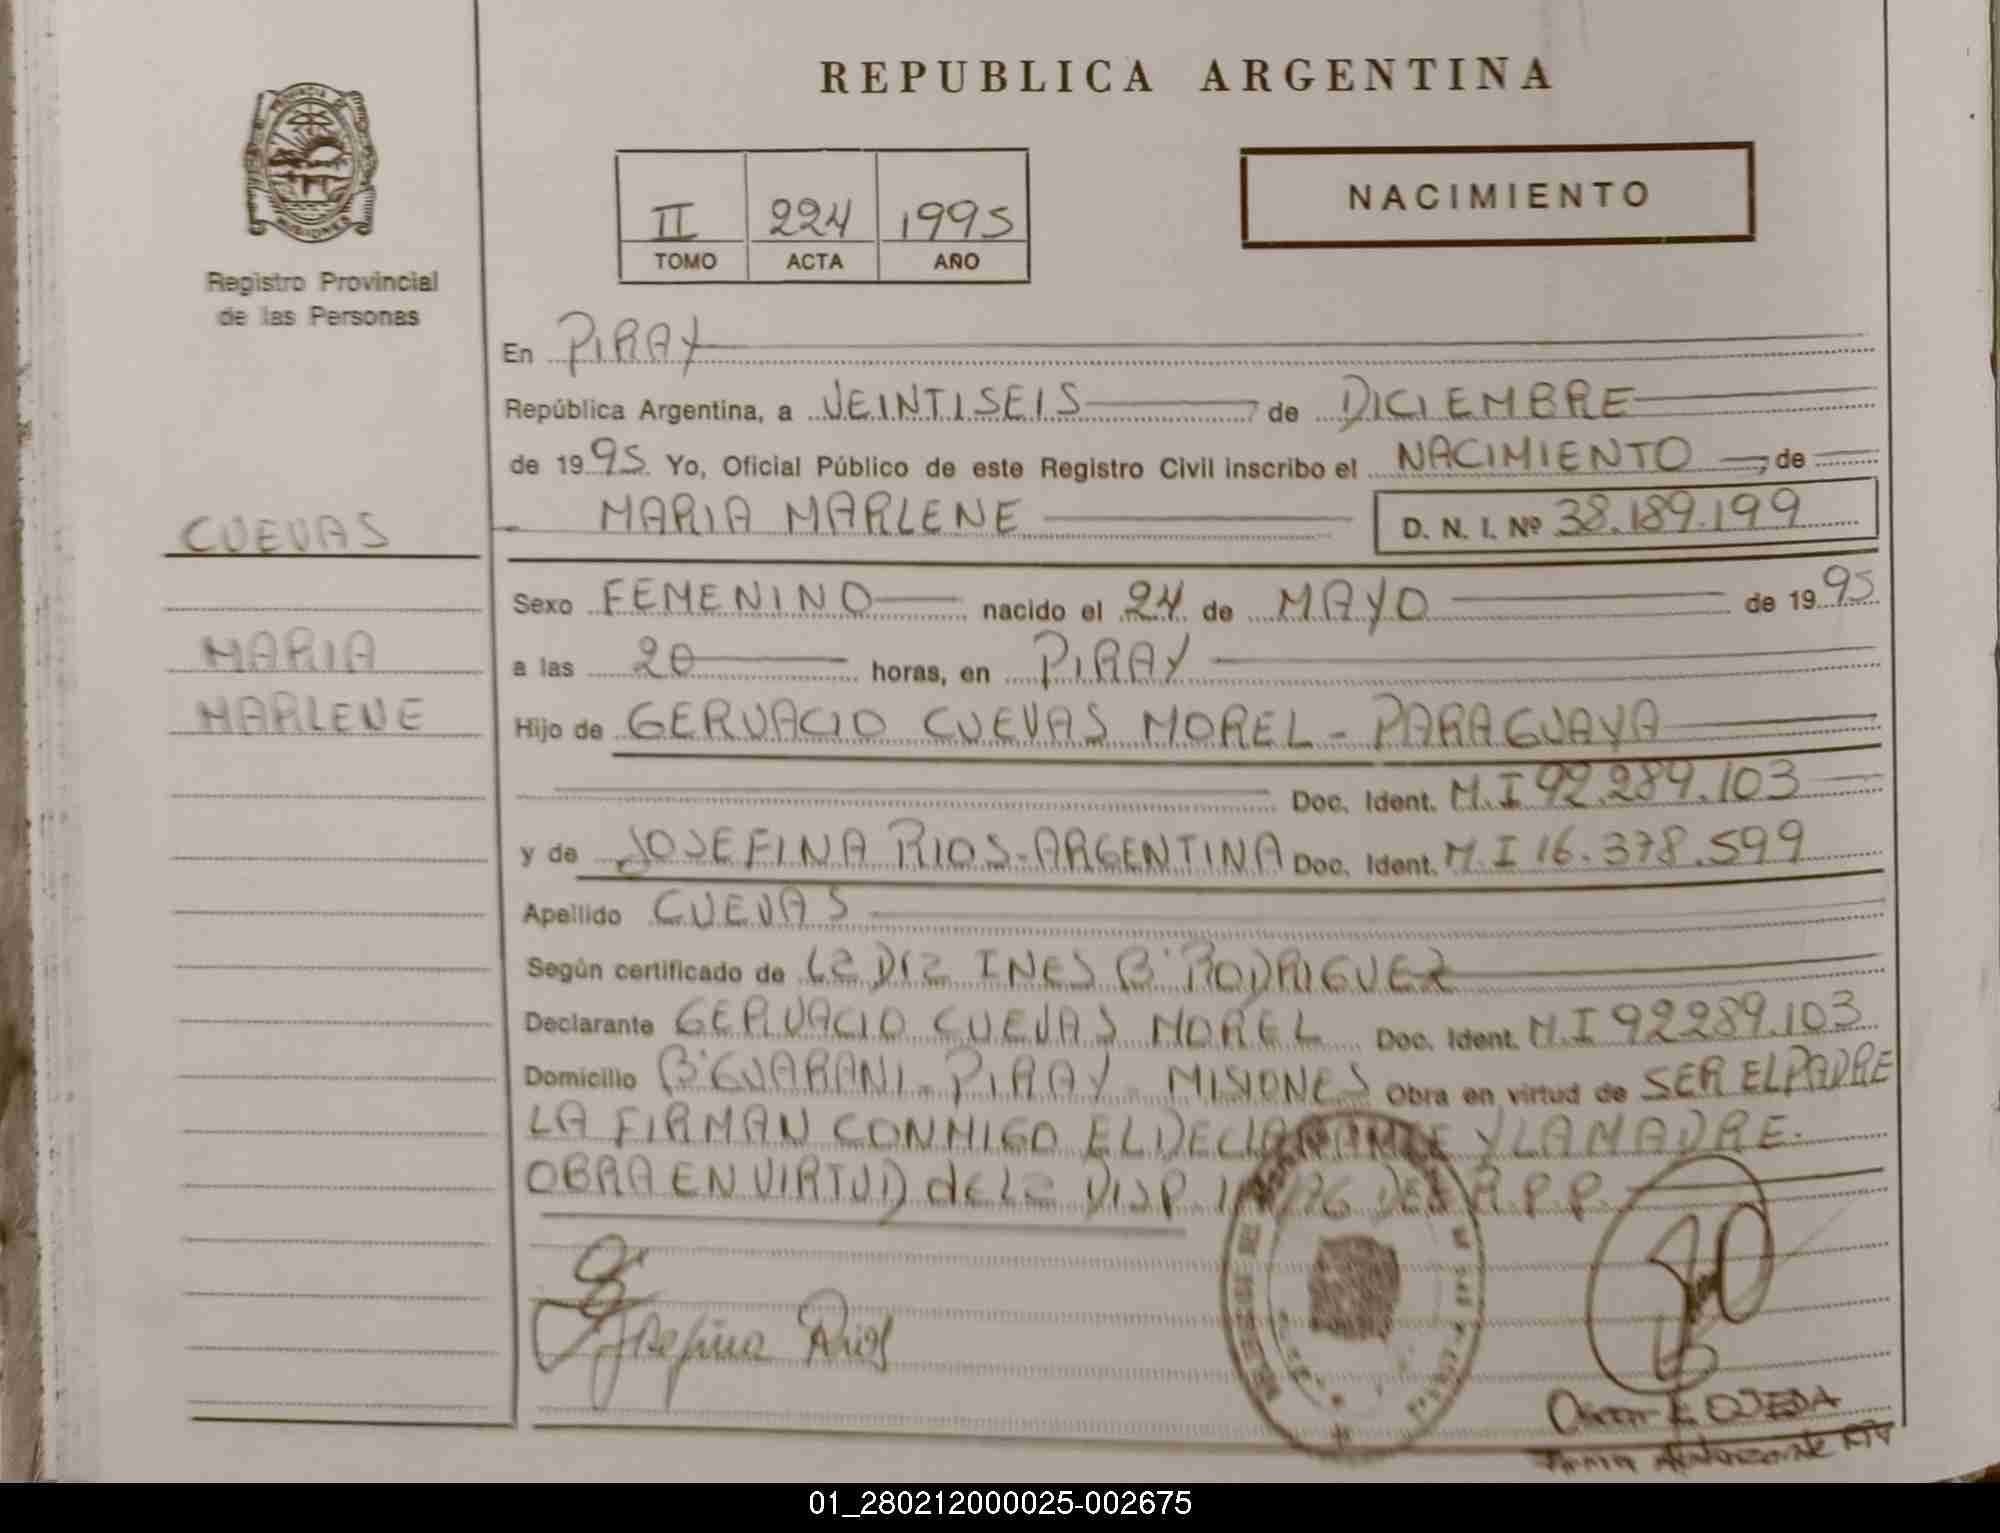 REPUBLICA ARGENTINA
PROVINCIA DE
MISIONES
Registro Provincial
de las Personas
II 224 1995
TOMO ACTA AÑO
NACIMIENTO
En PIRAY
República Argentina, a VEINTISEIS de DICIEMBRE
de 1995. Yo, Oficial Público de este Registro Civil inscribo el NACIMIENTO, de
CUEVAS
MARIA MARLENE D. N. I. Nº 38.189.199
Sexo FEMENINO nacido el 24 de MAYO de 1995
MARIA
a las 20 horas, en PIRAY
MARLENE
Hijo de GERVACIO CUEVAS MOREL - PARAGUAYA
Doc. Ident. M.I 92.289.103
y de JOSEFINA RIOS - ARGENTINA Doc. Ident. M.I 16.378.599
Apellido CUEVAS
Según certificado de INES B. RODRIGUEZ
Declarante GERVACIO CUEVAS MOREL Doc. Ident. M.I 92289.103
Domicilio Bº GUARANI - PIRAY - MISIONES Obra en virtud de SER EL PADRE
LA FIRMAN CONMIGO EL DECLARANTE Y LA MADRE.
OBRA EN VIRTUD de la DISP. DEL R.P.P.
Josefina Rios
OJEDA
01_280212000025-002675